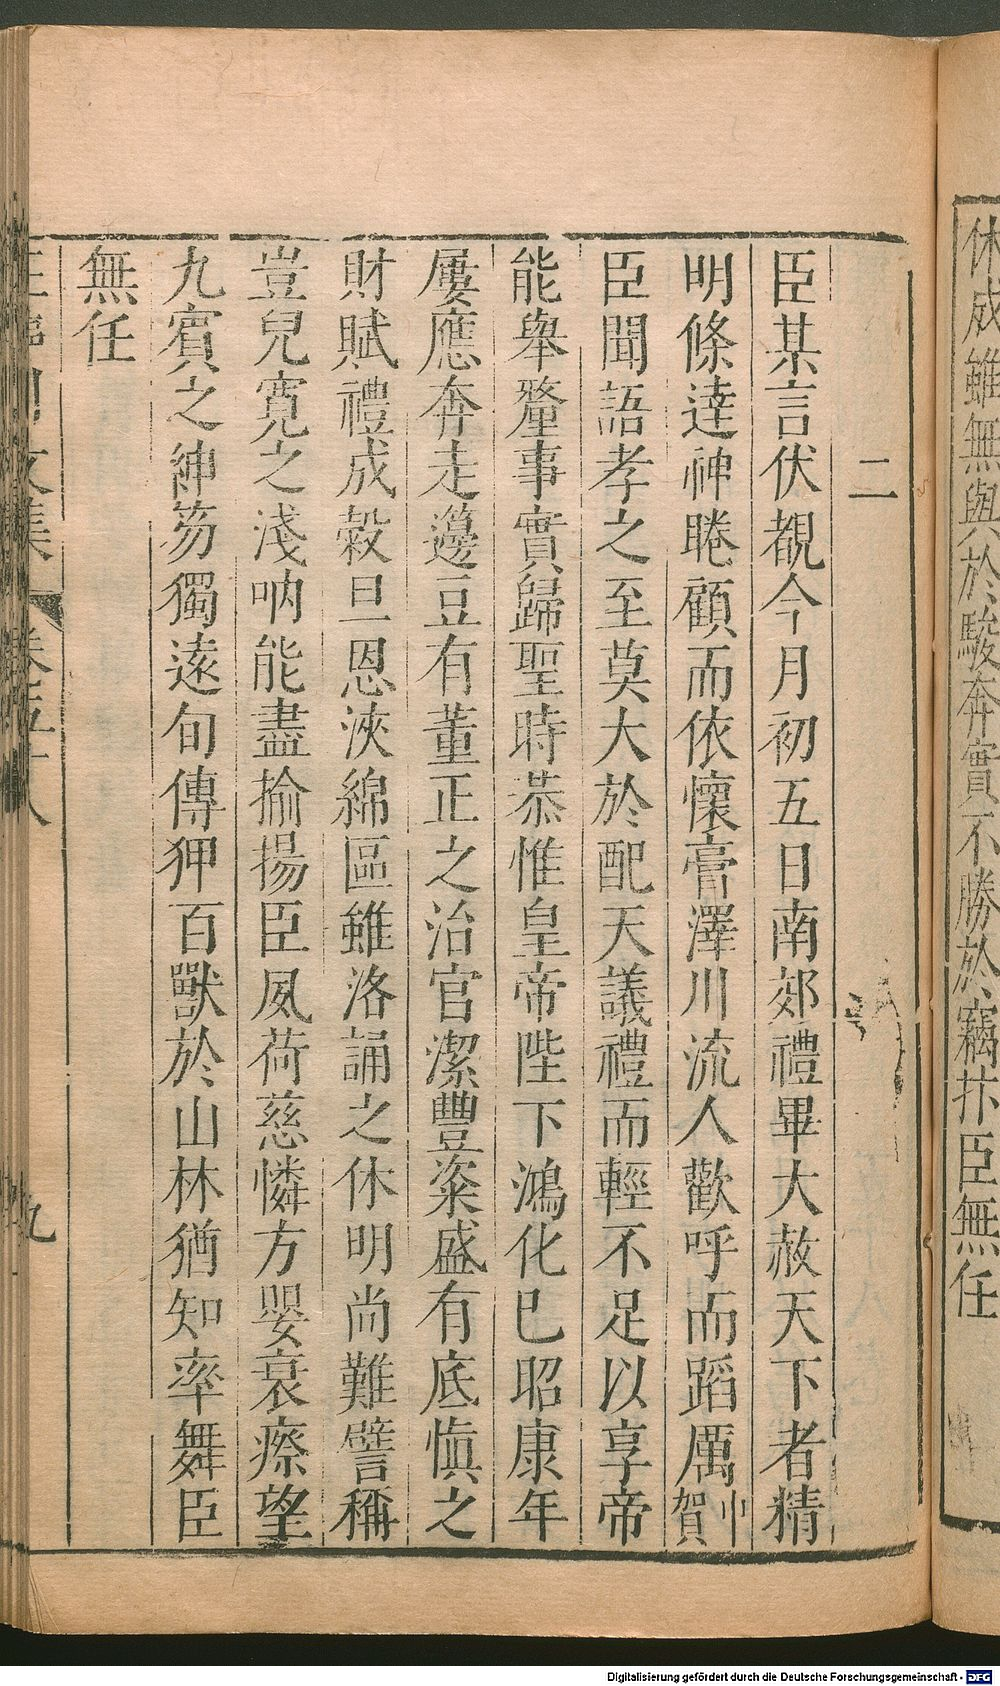 休成雖無與於駿奔實不勝於竊抃臣無任
二
臣某言伏覩今月初五日南郊禮畢大赦天下者精
明條達神睠顧而依懷膏澤川流人歡呼而蹈厲中賀
臣聞語孝之至莫大於配天議禮而輕不足以享帝
能舉釐事實歸聖時恭惟皇帝陛下鴻化已昭康年
屢應奔走籩豆有董正之治官潔豐粢盛有底慎之
財賦禮成穀旦恩浹綿區雖洛誦之休明尚難譬稱
豈兒寛之淺吶能盡揄揚臣夙荷慈憐方嬰衰瘵望
九賓之紳笏獨遠句傳狎百獸於山林猶知率舞臣
無任
王臨川文集 卷五十八 九
Digitalisierung gefördert durch die Deutsche Forschungsgemeinschaft - DFG